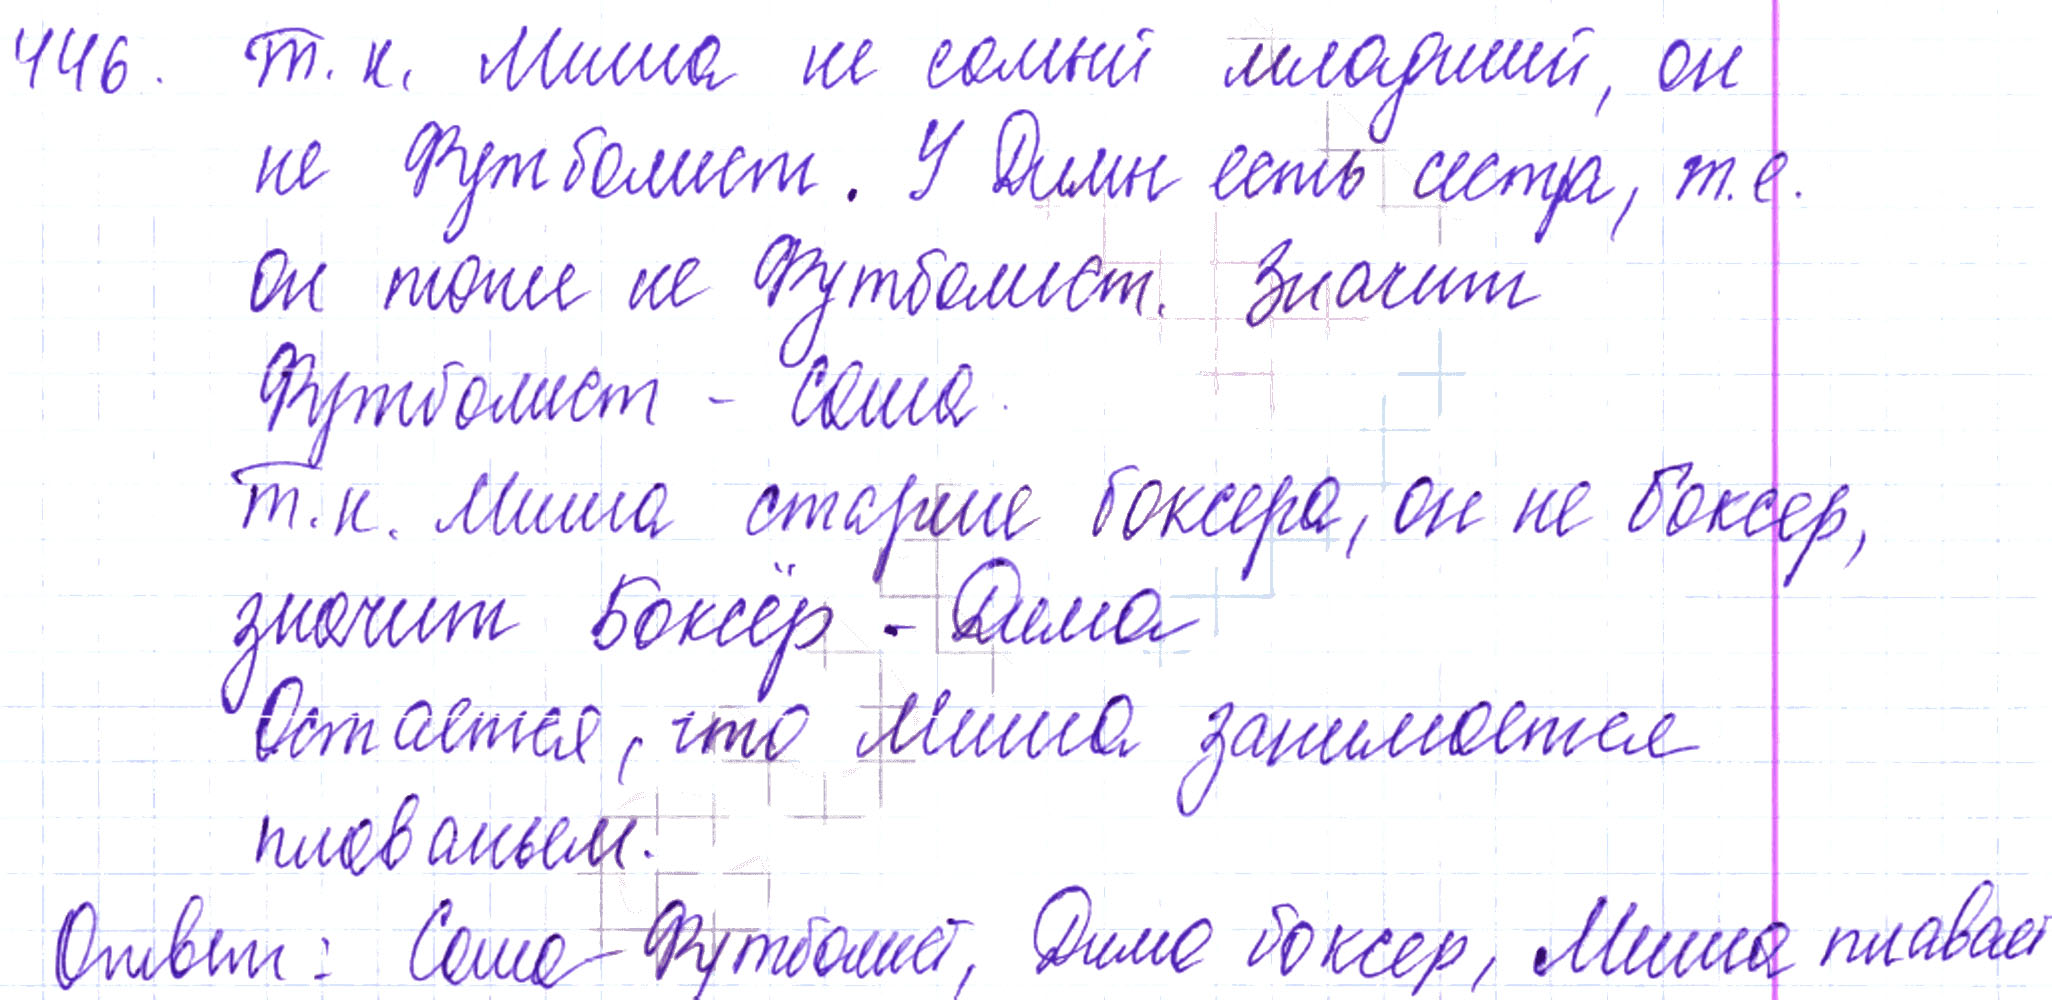 446. Т. к. Миша не самый младший, он
не футболист. У Димы есть сестра, т.е.
он тоже не футболист. Значит
футболист - Саша.
Т.к. Миша старше боксера, он не боксер,
значит боксёр - Дима
Остается, что Миша занимается
плаваньем.
Ответ: Саша - футболист, Дима боксер, Миша плавает